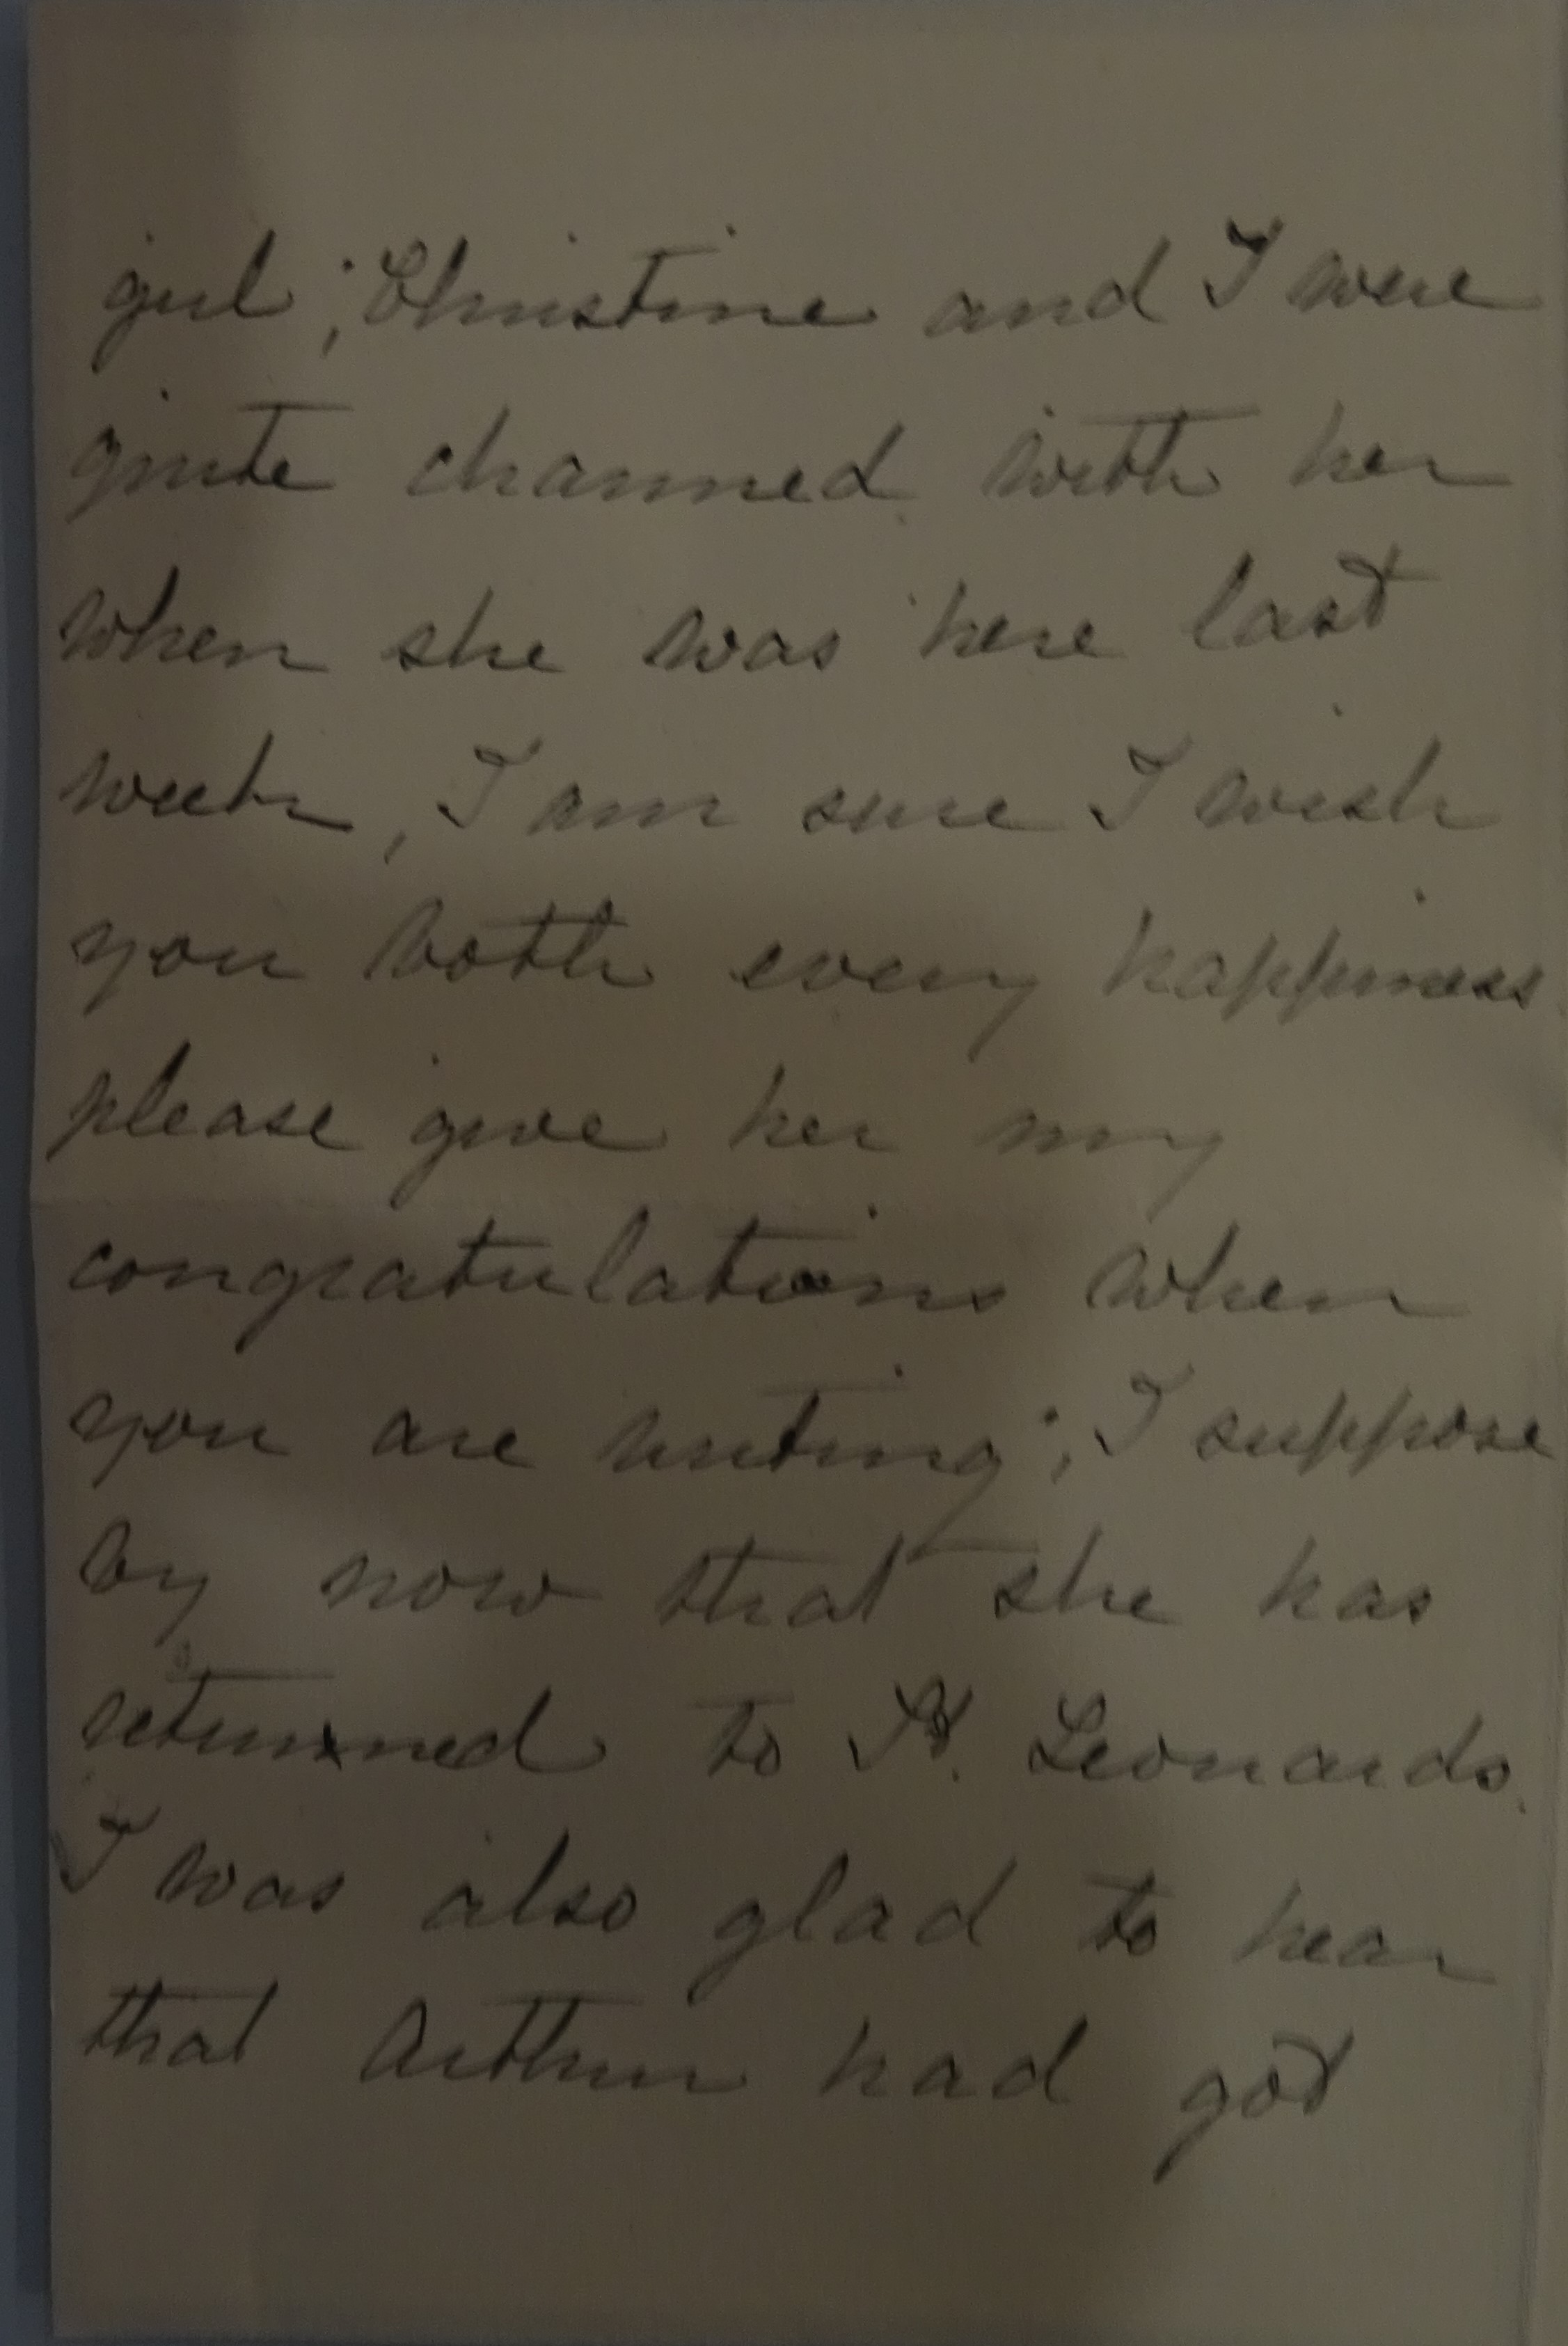 girl; Christine and I were
quite charmed with her
when she was here last
week, I am sure I wish
you both every happiness
please give her my
congratulations when
you are writing; I suppose
by now that she has
returned to St. Leonards.
I was also glad to hear
that Arthur had got